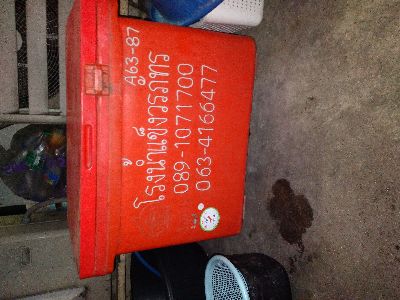 A63-87
โรงน้ำแข็งวรภัทร
089-1071700
063-4166477